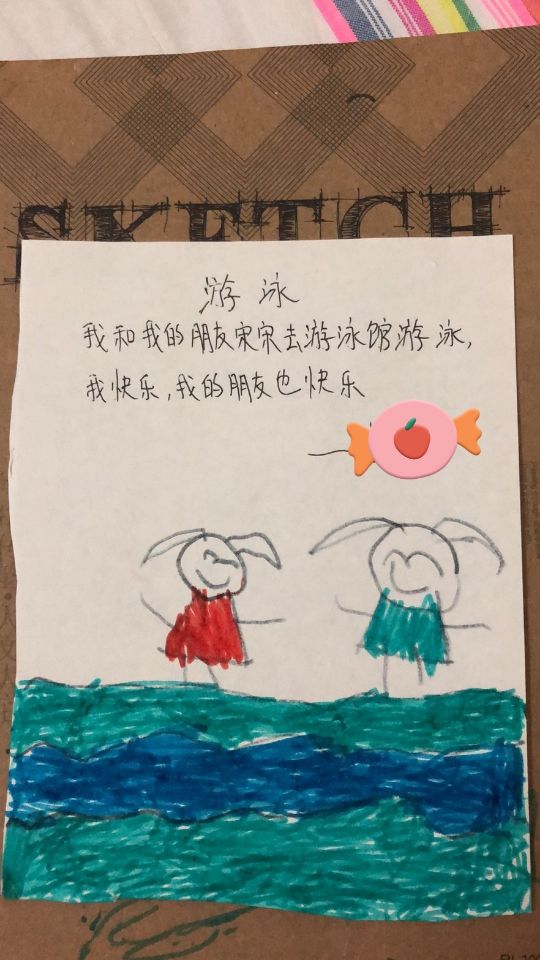 SKETCH
游泳
我和我的朋友宋宋去游泳馆游泳,
我快乐,我的朋友也快乐